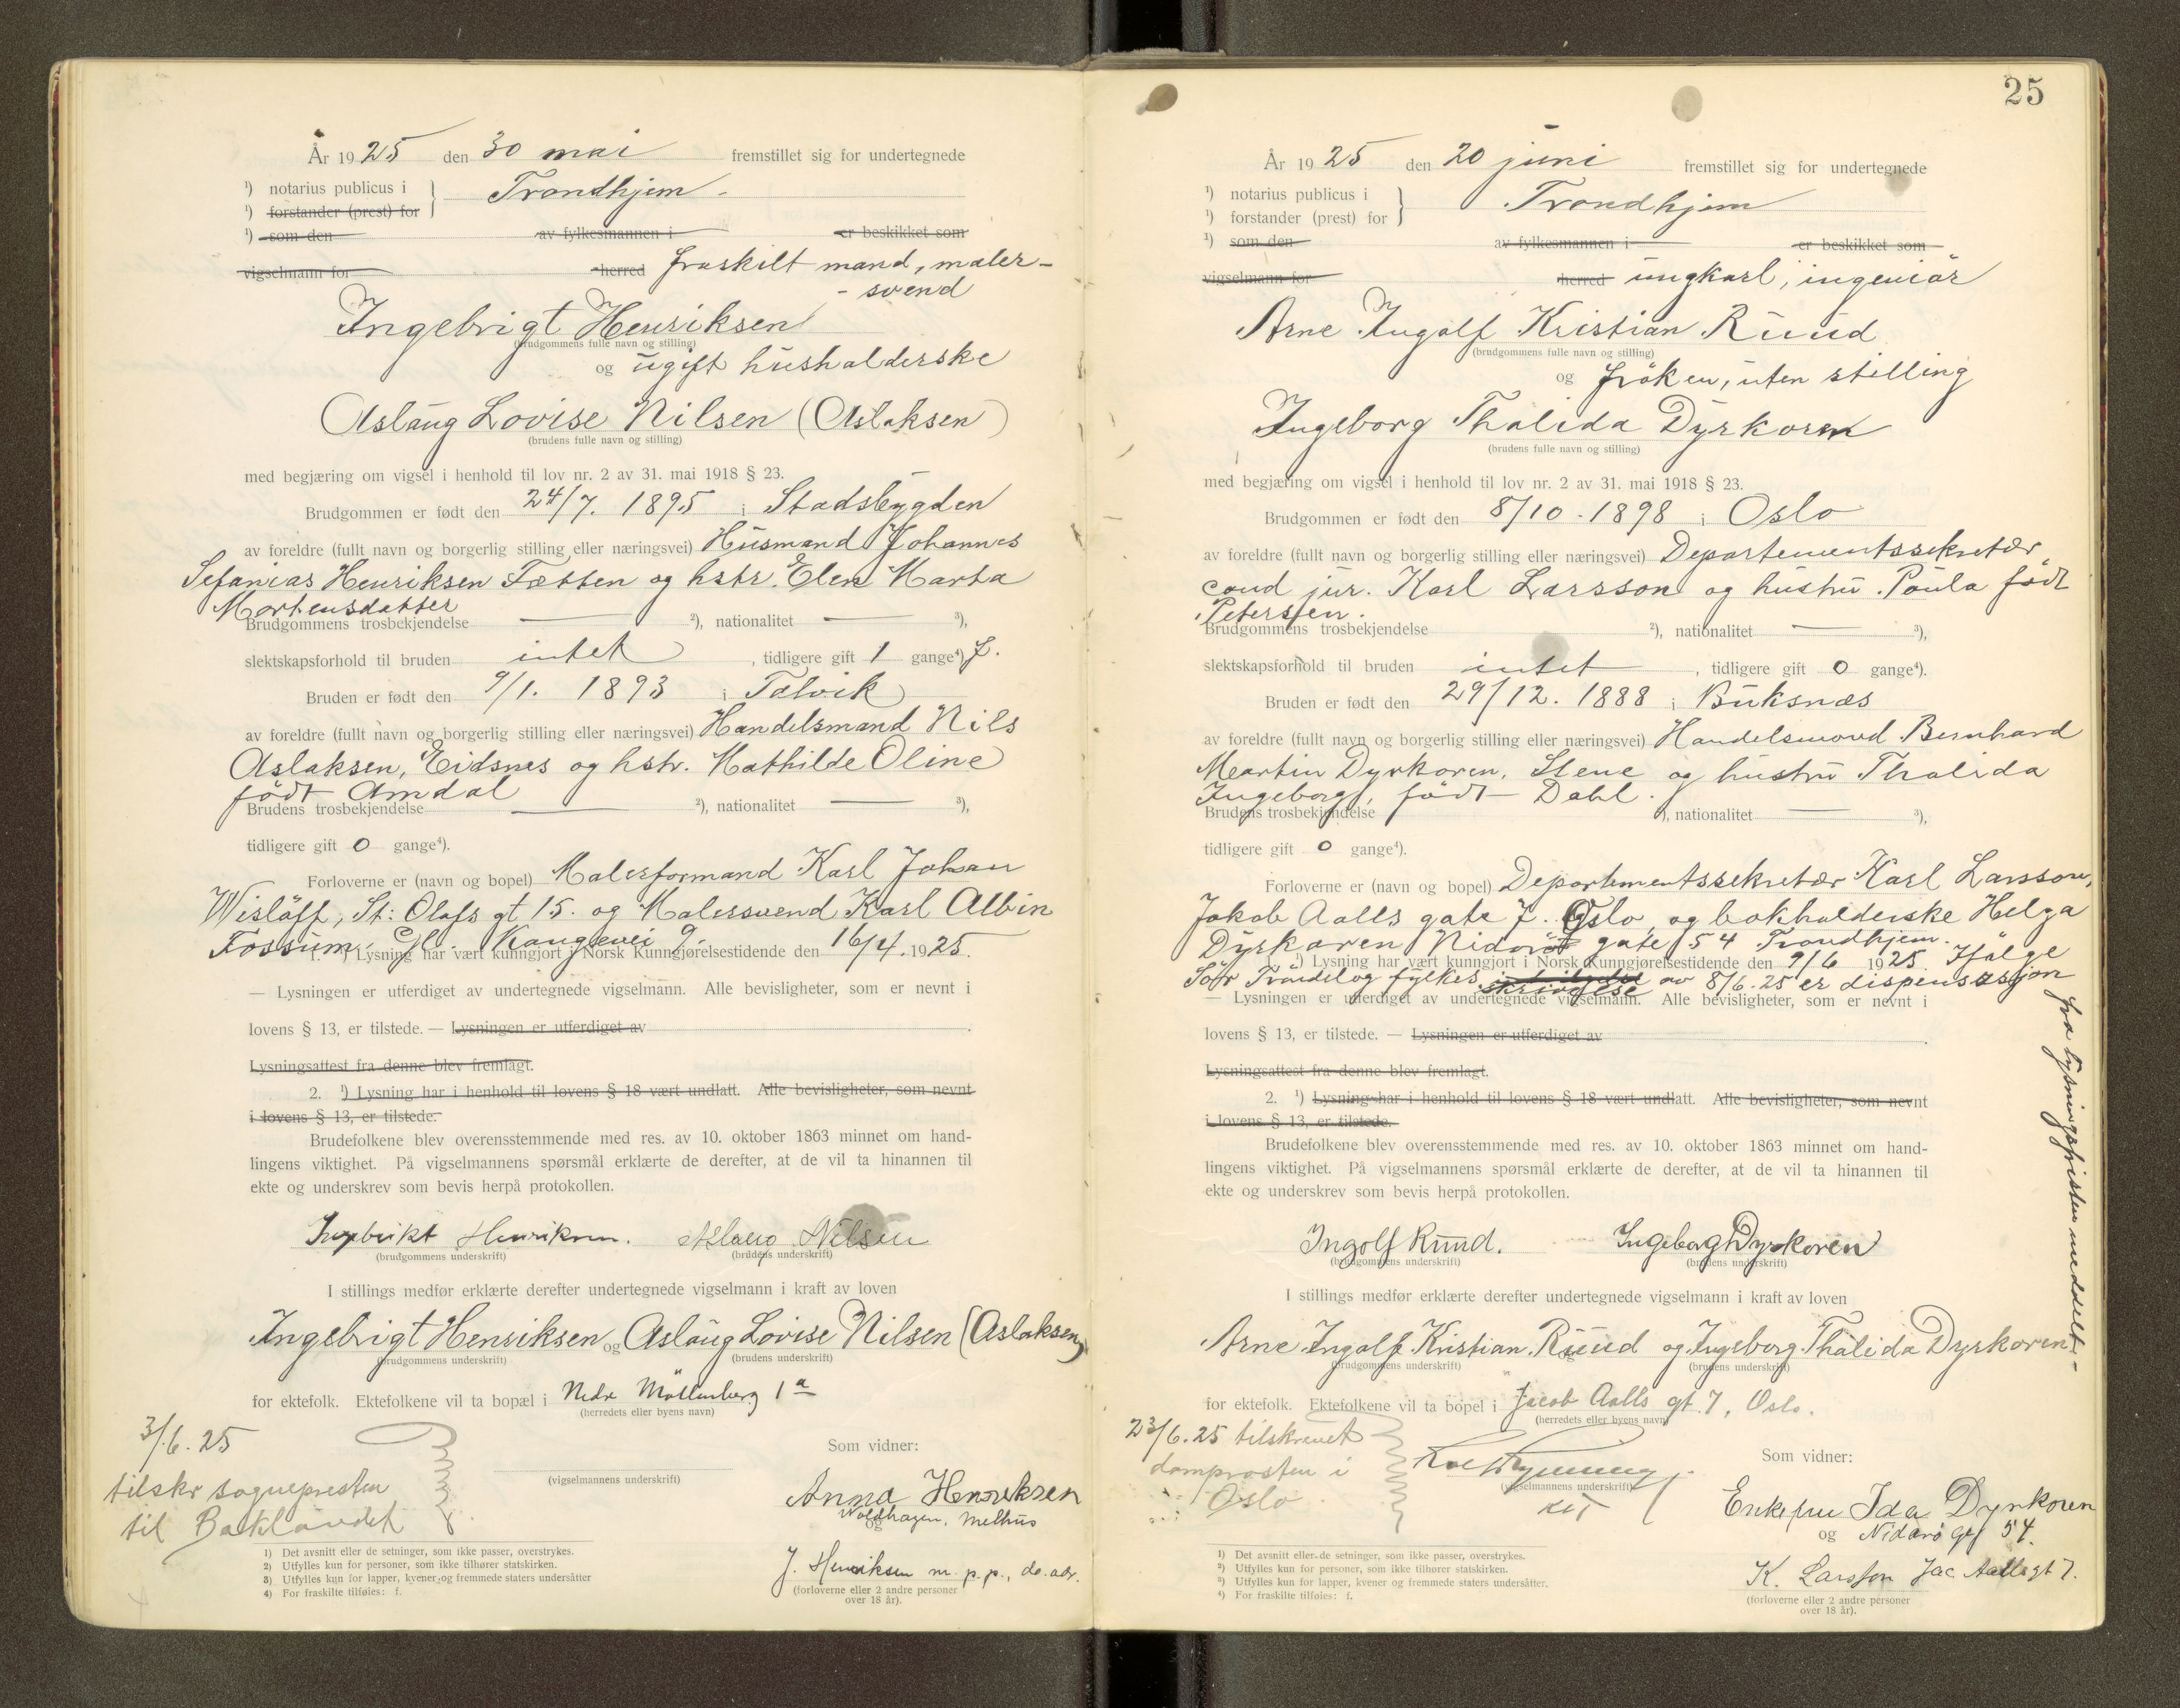 År 1925 den 30 mai fremstillet sig for undertegnede
¹) notarius publicus i } Trondhjem
¹) forstander (prest) for
¹) som den av fylkesmannen i er beskikket som
vigselmann for herred fraskilt mand, maler-
- svend
Ingebrigt Henriksen
(brudgommens fulle navn og stilling)
og ugift husholderske
Aslaug Lovise Nilsen (Aslaksen)
(brudens fulle navn og stilling)
med begjæring om vigsel i henhold til lov nr. 2 av 31. mai 1918 § 23.
Brudgommen er født den 24/7. 1895 i Stadsbygden
av foreldre (fullt navn og borgerlig stilling eller næringsvei) Husmand Johannes
Sefanias Henriksen Tætten og hstr. Elen Marta
Mortensdatter
Brudgommens trosbekjendelse — ²), nationalitet — ³),
slektskapsforhold til bruden intet, tidligere gift 1 gange⁴) f.
Bruden er født den 9/1. 1893 i Talvik
av foreldre (fullt navn og borgerlig stilling eller næringsvei) Handelsmand Nils
Aslaksen, Eidsnes og hstr. Mathilde Oline
født Amdal
Brudens trosbekjendelse — ²), nationalitet — ³),
tidligere gift 0 gange⁴).
Forloverne er (navn og bopel) Malerformand Karl Johan
Wisløff, St: Olafs gt 15. og Malersvend Karl Albin
Fossum, Gl. Kongevei 9.
1. ¹) Lysning har vært kunngjort i Norsk Kunngjørelsestidende den 16/4. 1925.
— Lysningen er utferdiget av undertegnede vigselmann. Alle bevisligheter, som er nevnt i
lovens § 13, er tilstede. — Lysningen er utferdiget av
Lysningsattest fra denne blev fremlagt.
2. ¹) Lysning har i henhold til lovens § 18 vært undlatt. Alle bevisligheter, som nevnt
i lovens § 13, er tilstede.
Brudefolkene blev overensstemmende med res. av 10. oktober 1863 minnet om hand-
lingens viktighet. På vigselmannens spørsmål erklærte de derefter, at de vil ta hinannen til
ekte og underskrev som bevis herpå protokollen.
Ingebrikt Henriksen. Aslaug Nilsen
(brudgommens underskrift) (brudens underskrift)
I stillings medfør erklærte derefter undertegnede vigselmann i kraft av loven
Ingebrigt Henriksen og Aslaug Lovise Nilsen (Aslaksen)
(brudgommens underskrift) (brudens underskrift)
for ektefolk. Ektefolkene vil ta bopæl i Nedre Møllenberg 1a
(herredets eller byens navn)
3/6. 25
tilskr sognepresten
til Baklandet
(vigselmannens underskrift)
Som vidner:
Anna Henriksen
Woldhagen, Melhus
og
J. Henriksen m. p. p., do. adr.
(forloverne eller 2 andre personer
over 18 år).
1) Det avsnitt eller de setninger, som ikke passer, overstrykes.
2) Utfylles kun for personer, som ikke tilhører statskirken.
3) Utfylles kun for lapper, kvener og fremmede staters undersåtter
4) For fraskilte tilføies: f.
25
År 1925 den 20 juni fremstillet sig for undertegnede
¹) notarius publicus i } Trondhjem
¹) forstander (prest) for
¹) som den av fylkesmannen i er beskikket som
vigselmann for herred ungkarl, ingeniør
Arne Ingolf Kristian Ruud
(brudgommens fulle navn og stilling)
og frøken, uten stilling
Ingeborg Thalida Dyrkoren
(brudens fulle navn og stilling)
med begjæring om vigsel i henhold til lov nr. 2 av 31. mai 1918 § 23.
Brudgommen er født den 8/10. 1898 i Oslo
av foreldre (fullt navn og borgerlig stilling eller næringsvei) Departementssekretær
cand jur. Karl Larsson og hustru Paula født
Peterssen.
Brudgommens trosbekjendelse ²), nationalitet — ³),
slektskapsforhold til bruden intet, tidligere gift 0 gange⁴).
Bruden er født den 29/12. 1888 i Buksnæs
av foreldre (fullt navn og borgerlig stilling eller næringsvei) Handelsmand Bernhard
Martin Dyrkoren, Stene og hustru Thalida
Ingeborg, født Dahl.
Brudens trosbekjendelse ²), nationalitet — ³),
tidligere gift 0 gange⁴).
Forloverne er (navn og bopel) Departementssekretær Karl Larsson,
Jakob Aalls gate 7. Oslo, og bokholderske Helga
Dyrkoren Nidarø gate 54 Trondhjem.
¹) Lysning har vært kunngjort i Norsk Kunngjørelsestidende den 9/6 1925. Ifølge
Sør Trøndelag fylkes skrivelse av 8/6. 25 er dispensasjon
fra lysningsfristen meddelt.-
— Lysningen er utferdiget av undertegnede vigselmann. Alle bevisligheter, som er nevnt i
lovens § 13, er tilstede. — Lysningen er utferdiget av
Lysningsattest fra denne blev fremlagt.
2. ¹) Lysning har i henhold til lovens § 18 vært undlatt. Alle bevisligheter, som nevnt
i lovens § 13, er tilstede.
Brudefolkene blev overensstemmende med res. av 10. oktober 1863 minnet om hand-
lingens viktighet. På vigselmannens spørsmål erklærte de derefter, at de vil ta hinannen til
ekte og underskrev som bevis herpå protokollen.
Ingolf Ruud. Ingeborg Dyrkoren
(brudgommens underskrift) (brudens underskrift)
I stillings medfør erklærte derefter undertegnede vigselmann i kraft av loven
Arne Ingolf Kristian Ruud og Ingeborg Thalida Dyrkoren
(brudgommens underskrift) (brudens underskrift)
for ektefolk. Ektefolkene vil ta bopel i Jacob Aalls gt. 7, Oslo.
(herredets eller byens navn)
23/6. 25 tilskrevet
domprosten i
Oslo
(vigselmannens underskrift)
Som vidner:
Enkefru Ida Dyrkoren
og Nidarø gt 54.
K. Larsson Jac Aallsgt 7.
(forloverne eller 2 andre personer
over 18 år).
¹) Det avsnitt eller de setninger, som ikke passer, overstrykes.
²) Utfylles kun for personer, som ikke tilhører statskirken.
³) Utfylles kun for lapper, kvener og fremmede staters undersåtter.
⁴) For fraskilte tilføies: f.